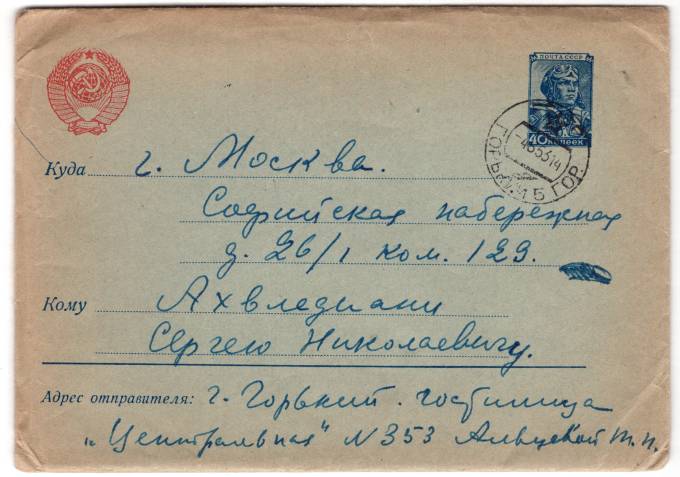 ПОЧТА СССР
40 копеек
ГОРЬКИЙ 15 ГОР.
-465314
Куда г. Москва.
Софийская набережная
д. 26/1 ком. 129.
Кому Ахвледиани
Сергею Николаевичу.
Адрес отправителя: г. Горький. гостиница
„Центральная" N 353